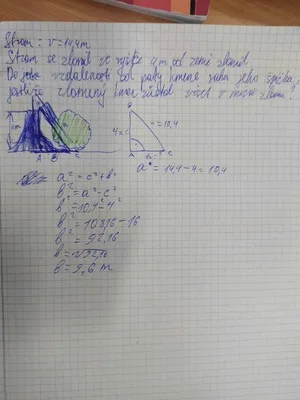 Strom: v = 14,4m
Strom se zlomil ve výšce 4m od země zlomil.
Do jaké vzdálenosti od paty kmene sahá jeho špička,
jestliže zlomený kmen zůstal viset v místě zlomu?
B
4=c
a=10,4
A
b=?
C
A B C
a = 14,4 - 4 = 10,4
a² = c² + b²
b² = a² - c²
b² = 10,4² - 4²
b² = 108,16 - 16
b² = 92,16
b = √92,16
b = 9,6 m